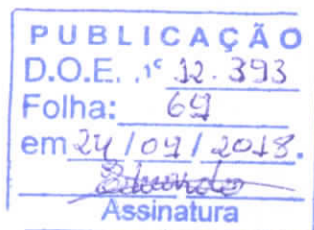 PUBLICAÇÃO
D.O.E. .nº 12.393
Folha: 69
em 24 / 09 / 2018.
Assinatura